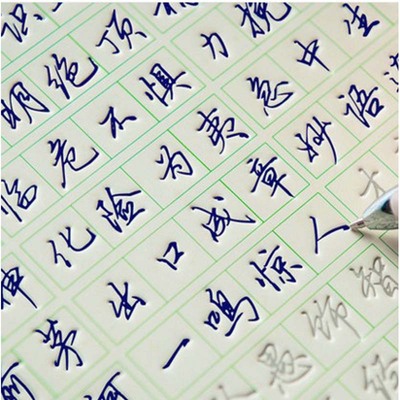 识
明绝顶
临危不惧力挽
神化险为夷急中生
茅出口成章妙语
一鸣惊人